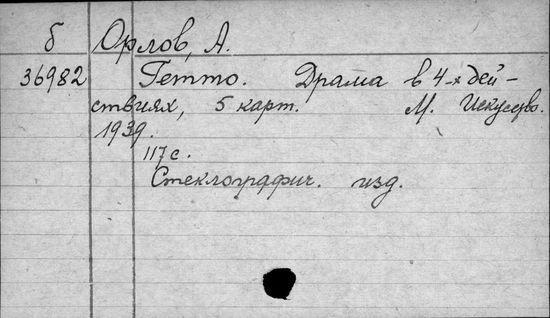 б Орлов, А.
36982 Гетто. Драма в 4-х дей-
ствиях, 5 карт. М. Искусство.
1939.
117 с.
Стеклографич. изд.